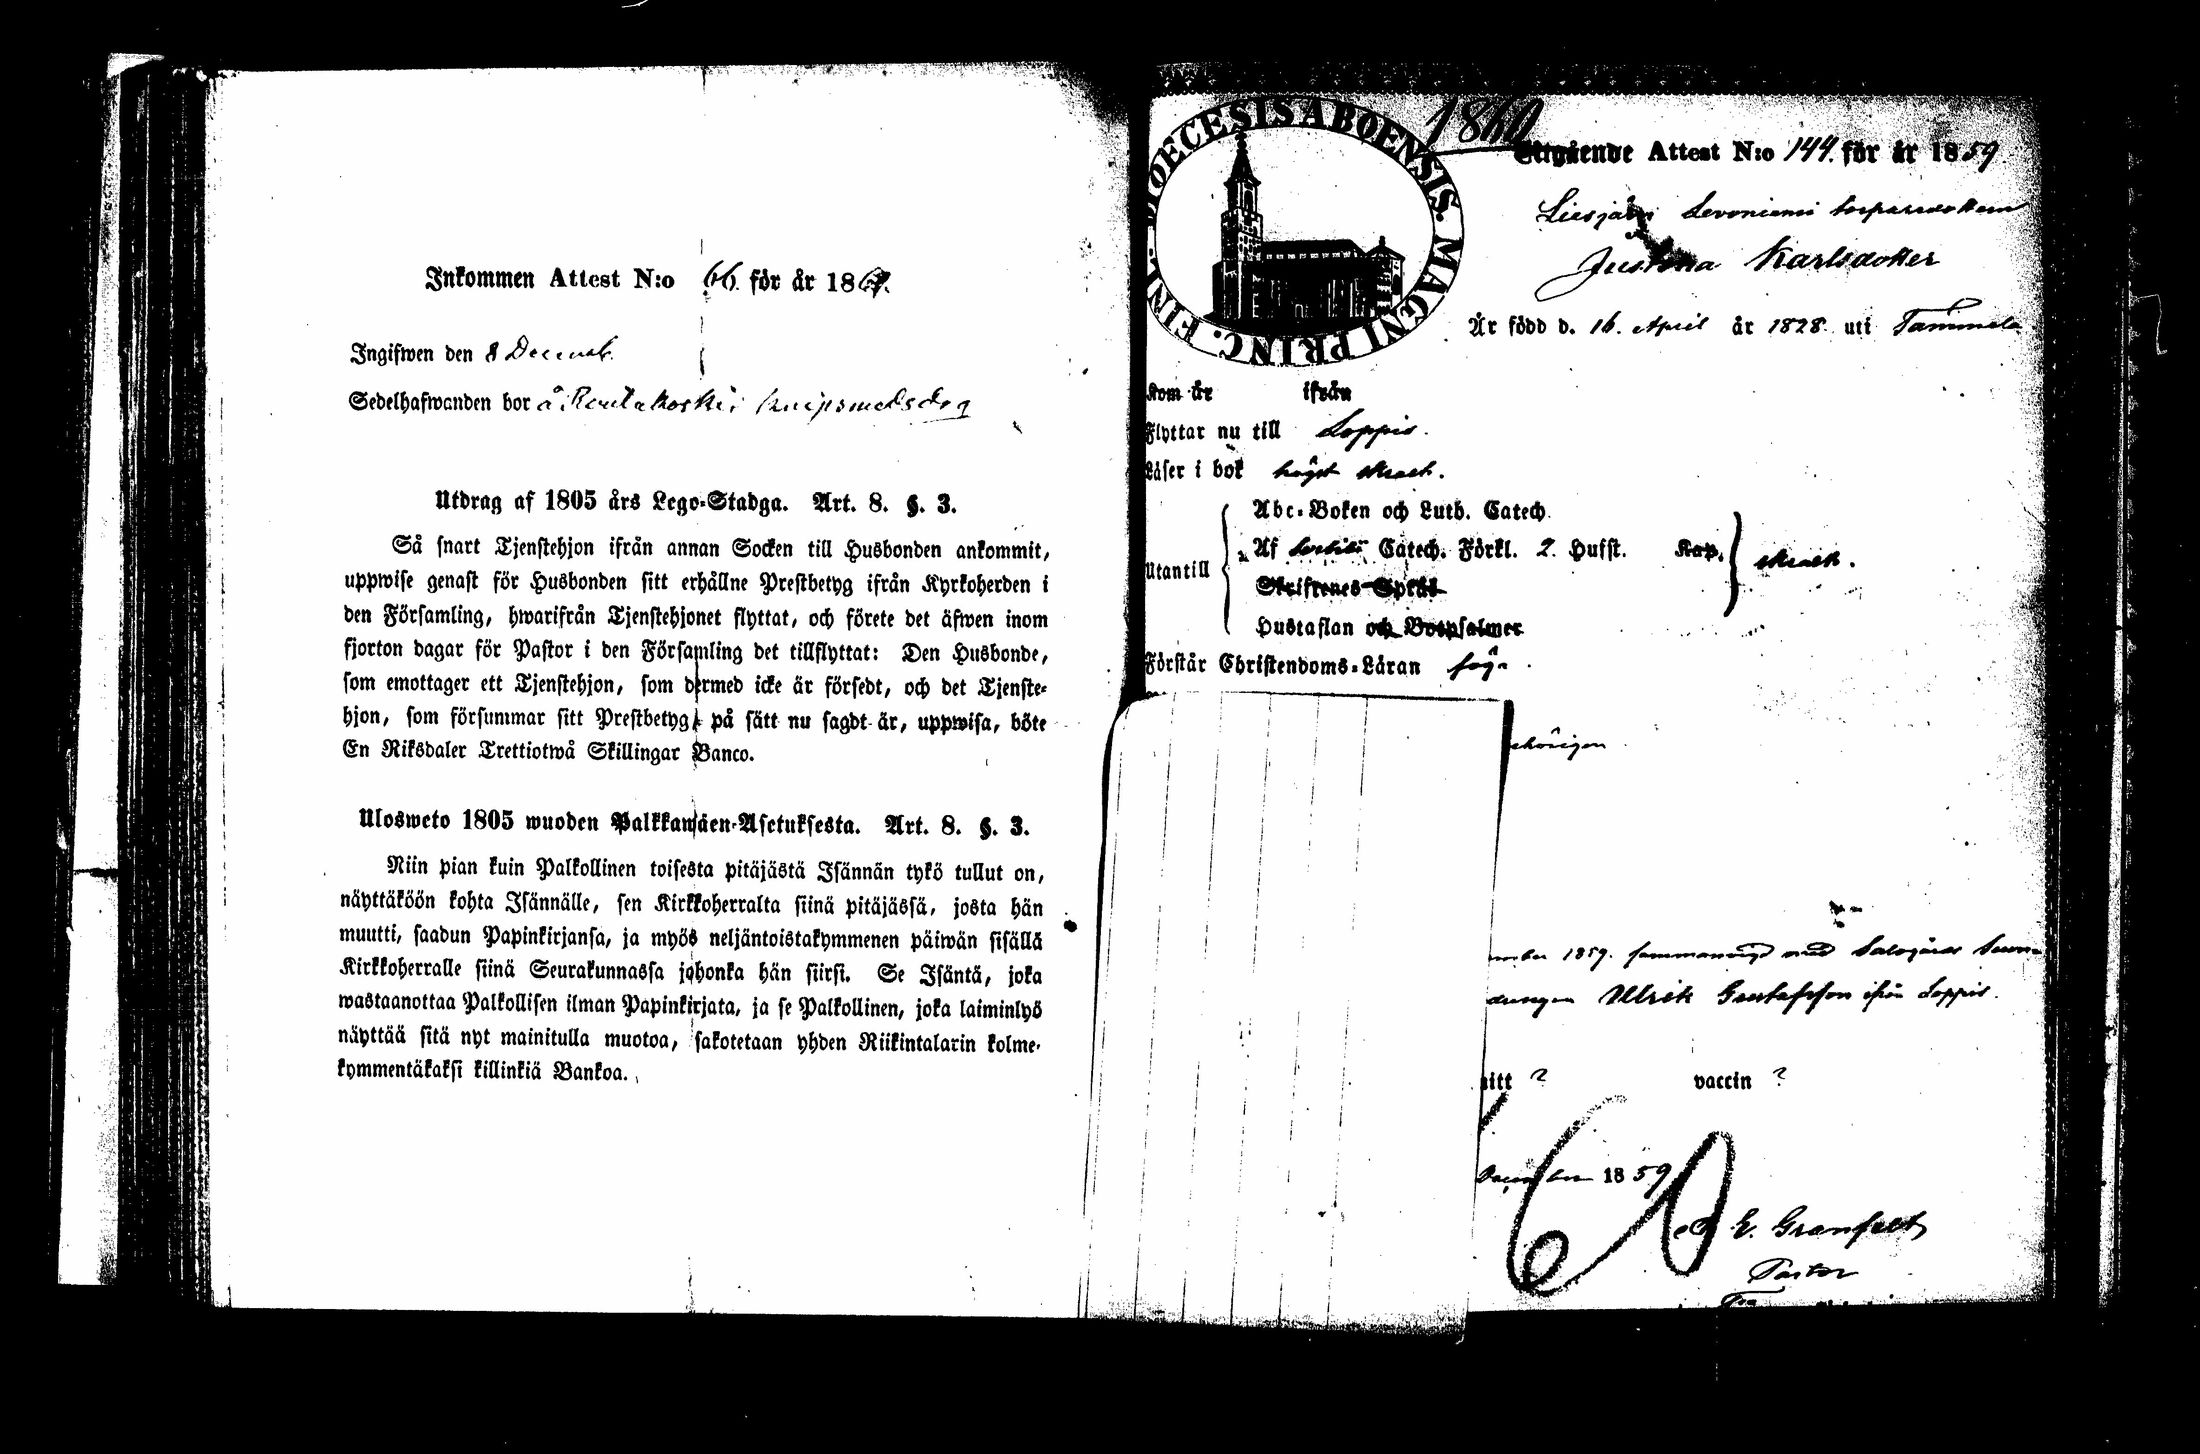 Inkommen Attest N:o 66. för år 186
Ingifwen den 8 Decemb.
Sedelhafwanden bor å Rautakoski
Utdrag af 1805 års Lego-Stadga. Art. 8. §. 3.
Så snart Tjenstehjon ifrån annan Socken till Husbonden ankommit,
uppwise genast för Husbonden sitt erhållne Prestbetyg ifrån Kyrkoherden i
den Församling, hwarifrån Tjenstehjonet flyttat, och förete det äfwen inom
fjorton dagar för Pastor i den Församling det tillflyttat: Den Husbonde,
som emottager ett Tjenstehjon, som dermed icke är försedt, och det Tjenste-
hjon, som försummar sitt Prestbetyg, på sätt nu sagdt är, uppwisa, böte
En Riksdaler Trettiotwå Skillingar Banco.
Ulosweto 1805 wuoden Palkkawäen-Asetuksesta. Art. 8. §. 3.
Niin pian kuin Palkollinen toisesta pitäjästä Isännän tykö tullut on,
näyttäköön kohta Isännälle, sen Kirkkoherralta siinä pitäjässä, josta hän
muutti, saadun Papinkirjansa, ja myös neljäntoistakymmenen päiwän sisällä
Kirkkoherralle siinä Seurakunnassa johonka hän siirsi. Se Isäntä, joka
wastaanottaa Palkollisen ilman Papinkirjata, ja se Palkollinen, joka laiminlyö
näyttää sitä nyt mainitulla muotoa, sakotetaan yhden Riikintalarin kolme-
kymmentäkaksi killinkiä Bankoa.
DIOECESIS ABOENSIS. MAGNI PRINC. FINL.
1860
Utgående Attest N:o 144. för år 1859
Liesjärvi Levoniemi torparedottern
Justina Karlsdotter
Är född d. 16. April år 1828. uti Tammela
Kom år ifrån
Flyttar nu till Loppis.
Läser i bok högst swack.
Utantill
Abc-Boken och Luth. Catech.
Af Catech. Förkl. 2. Hufst. Kap.
Skriftenes Språk
Hustaflan och Botpsalmer
swack.
Förstår Christendoms-Läran föga.
ehörigen
ember 1859. sammanvigd med
drengen Ullrik Gustafsson ifrån Loppis.
nitt ? vaccin ?
December 1859
60
E. Granfelt
Pastor